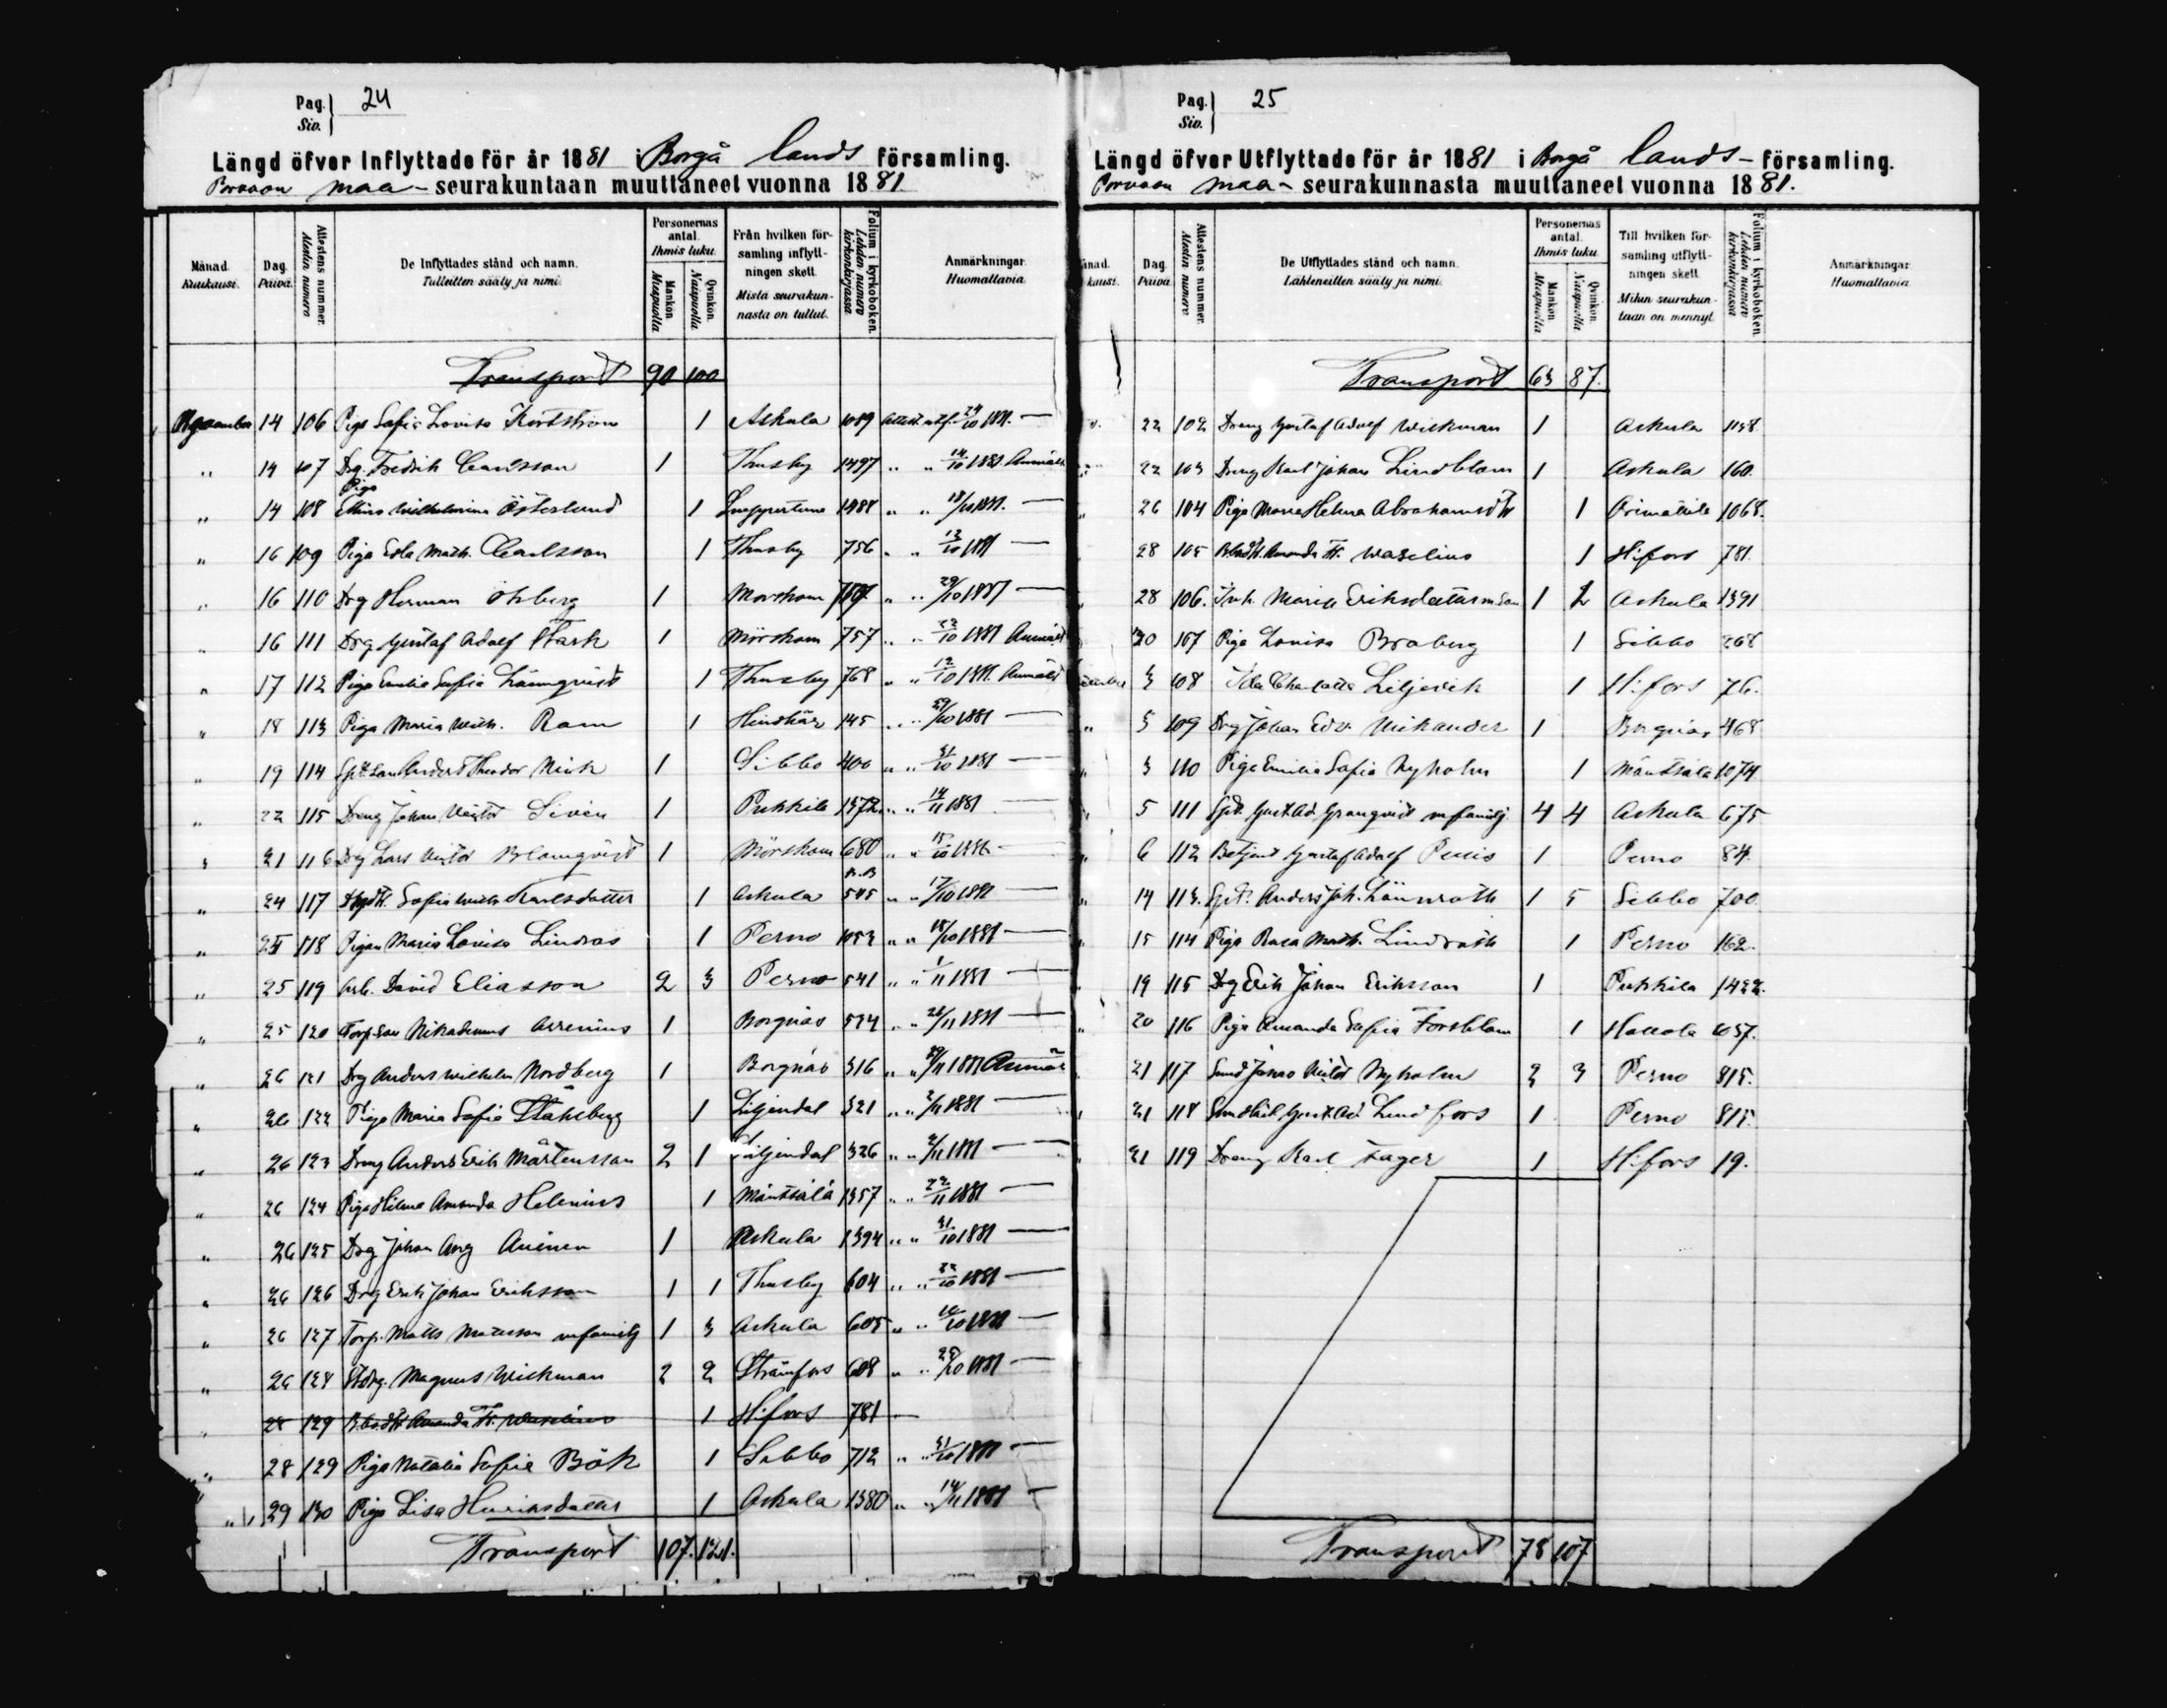 Pag. 24
Siv.
Längd öfver Inflyttade för år 1881 i Borgå lands församling.
Porvoon maa-seurakuntaan muuttaneet vuonna 1881.
Månad. Kuukausi. Dag. Päivä. Attestens nummer. Alestin numero De Inflyttades stånd och namn. Tulleitten sääty ja nimi. Personernas antal. Ihmis luku. Mankön. Miespuolia Qvinkön. Naispuolia Från hvilken församling inflyttningen skett. Mistä seurakunnasta on tullut. Folium i kyrkoboken. Lehden numero kirkonkirjassa Anmärkningar. Huomattavia.
Transport 90 100
14 106 Piga Sofia Lovisa 1 Askula 1089 24/10 1881. —
" 14 107 Drg. Fredrik Carlsson 1 Thusby 1497 " " 14/10 1881
" 14 108 Piga Wilhelmina Österlund 1 1488 " " 18/10 1881. —
" 16 109 Piga Edla Math. Carlsson 1 Thusby 756 " " 13/10 1881 —
" 16 110 Drg Herman Öhberg 1 Mörskom " " 29/10 1881 —
" 16 111 Drg Gustaf Adolf Stark 1 Mörskom 757 " " 23/10 1881
" 17 112 Piga Emilia Sofia Lönnqvist 1 Thusby 768 " " 12/10 1881.
" 18 113 Piga Maria Wilh. Ram 1 Hindhår 145 " " 29/10 1881 —
" 19 114 Anders Theodor 1 Sibbo 400 " " 31/10 1881 —
" 22 115 Dreng Johan Viktor Sivén 1 Pukkila 1372 " " 14/11 1881 —
" 21 116 Drg Lars Viktor Blomqvist 1 Mörskom 680 " " 15/10 1881 —
" 24 117 Sofia Wilh. Karlsdotter 1 Askula 545 " " 17/10 1881 —
" 118 Pigan Maria Lovisa Lindroos 1 Perno 1053 " " 18/10 1881 —
" 25 119 Arb. David Eliasson 2 3 Perno 541 " " 1/11 1881 —
" 25 120 Torp.son Nikodemus Arrenius 1 Borgnäs 524 " " 1881 —
" 26 121 Drg Anders Wilhelm Nordberg 1 Borgnäs 316 " " 1881
" 26 122 Piga Maria Sofia Ståhlberg 1 Liljendal 321 " " 2/11 1881 —
" 26 123 Dreng Anders Erik Mårtensson 2 1 Liljendal 326 " " 2/11 1881 —
" 26 124 Piga Hilma Amanda Helenius 1 Mäntsälä 1357 " " 22/11 1881 —
" 26 125 Drg Johan Aug 1 Askula 1394 " " 31/10 1881 —
" 26 126 Drg Erik Johan Eriksson 1 1 Thusby 604 " " 22/10 1881 —
" 26 127 Torp. Matts Matsson m familj 1 3 Askula 605 " " 1881 —
" 26 128 Magnus Wickman 2 2 Strömfors 608 " " 1881 —
" 28 129 Amanda Fr. Waselius 1 H:fors 781 —
" 28 129 Piga Natalia Sofia Böök 1 Sibbo 712 " " 31/10 1881 —
" 29 130 Piga Lisa Henriksdotter 1 Askula 1380 " " 14/11 1881 —
Transport 107. 121.
Pag. 25
Siv.
Längd öfver Utflyttade för år 1881 i Borgå lands-församling.
Porvoon maa-seurakunnasta muuttaneet vuonna 1881.
Dag. Päivä. Attestens nummer. Alestin numero De Utflyttades stånd och namn. Lähteneitten sääty ja nimi. Personernas antal. Ihmis luku. Mankön. Miespuolia Qvinkön. Naispuolia Till hvilken församling utflyttningen skett. Mihin seurakuntaan on mennyt. Folium i kyrkoboken. Lehden numero kirkonkirjassa Anmärkningar. Huomattavia
Transport 63 87.
22 102 Dreng Gustaf Adolf Wickman 1 Askula
22 103 Dreng Karl Johan Lindblom 1 Askula 160.
26 104 Piga Maria Helena Abrahamsdtr 1 Orimattila 1068.
28 105 Amanda Fr. Waselius 1 H:fors 781.
28 106. Inh. Maria Eriksdotter m son 1 2 Askula 1391
30 107 Piga Lovisa Broberg 1 Sibbo 268
3 108 Ida Charlotta Liljevik 1 H:fors 76.
3 109 Drg Johan Edv. Mikander 1 Borgnäs 468
3 110 Piga Emilia Sofia Nyholm 1 Mäntsälä 1074
5 111 Gust. Ad. Granqvist m familj 4 4 Askula 675
6 112 Betjent Gustaf Adolf 1 Perno 84.
14 113. Anders Joh. Lönnroth 1 5 Sibbo 700
15 114 Piga Rosa Math. Lindroth 1 Perno 162.
19 115 Drg Erik Johan Eriksson 1 Pukkila 1422.
20 116 Piga Amanda Sofia Forsblom 1 Hollola 1037.
21 117 Smed Jonas Viktor Nyholm 2 3 Perno 815.
21 118 Gust. Ad. Lindfors 1 Perno 815.
21 119 Dreng Karl Fager 1 H:fors 19.
Transport 78 107